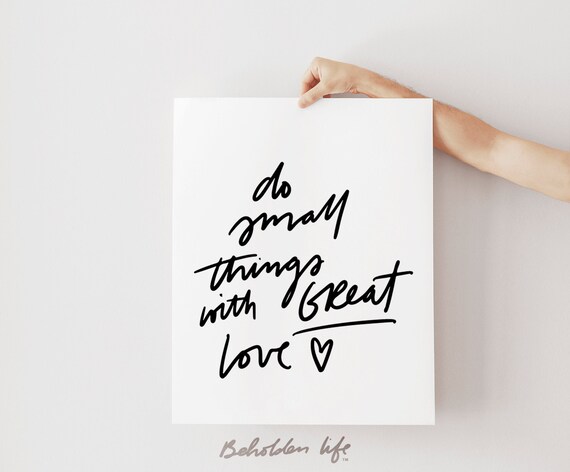 do
small
things
with GREAT
love ♡
Beholden life™